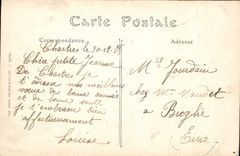 Carte Postale
Correspondance
Adresse
Chartres le 30-12-
Chère petite Jeanne
De Chartres je
t'adresse mes meilleurs
vœux de bonne année
et de bonne santé
je t'embrasse bien
affectueusement
Louise
Mlle Jourdain
chez Mr Naudet
à Broglie
Eure